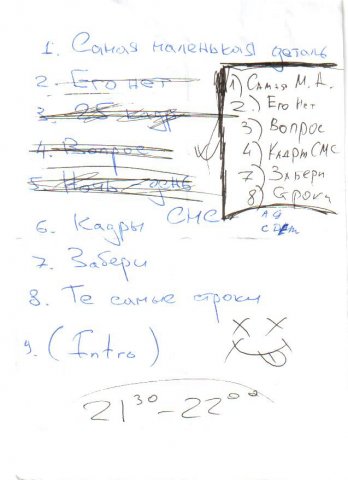 1. Самая маленькая деталь
2. Его нет
3. 25 кадр
4. Вопрос
5. Ночь-день
6. Кадры СМС
7. Забери
8. Те самые строки
9. (Intro)
21 30 - 22 00
1) Самая М. Д.
2) Его Нет
3) Вопрос
4) Кадры СМС
7) Забери
8) Строки